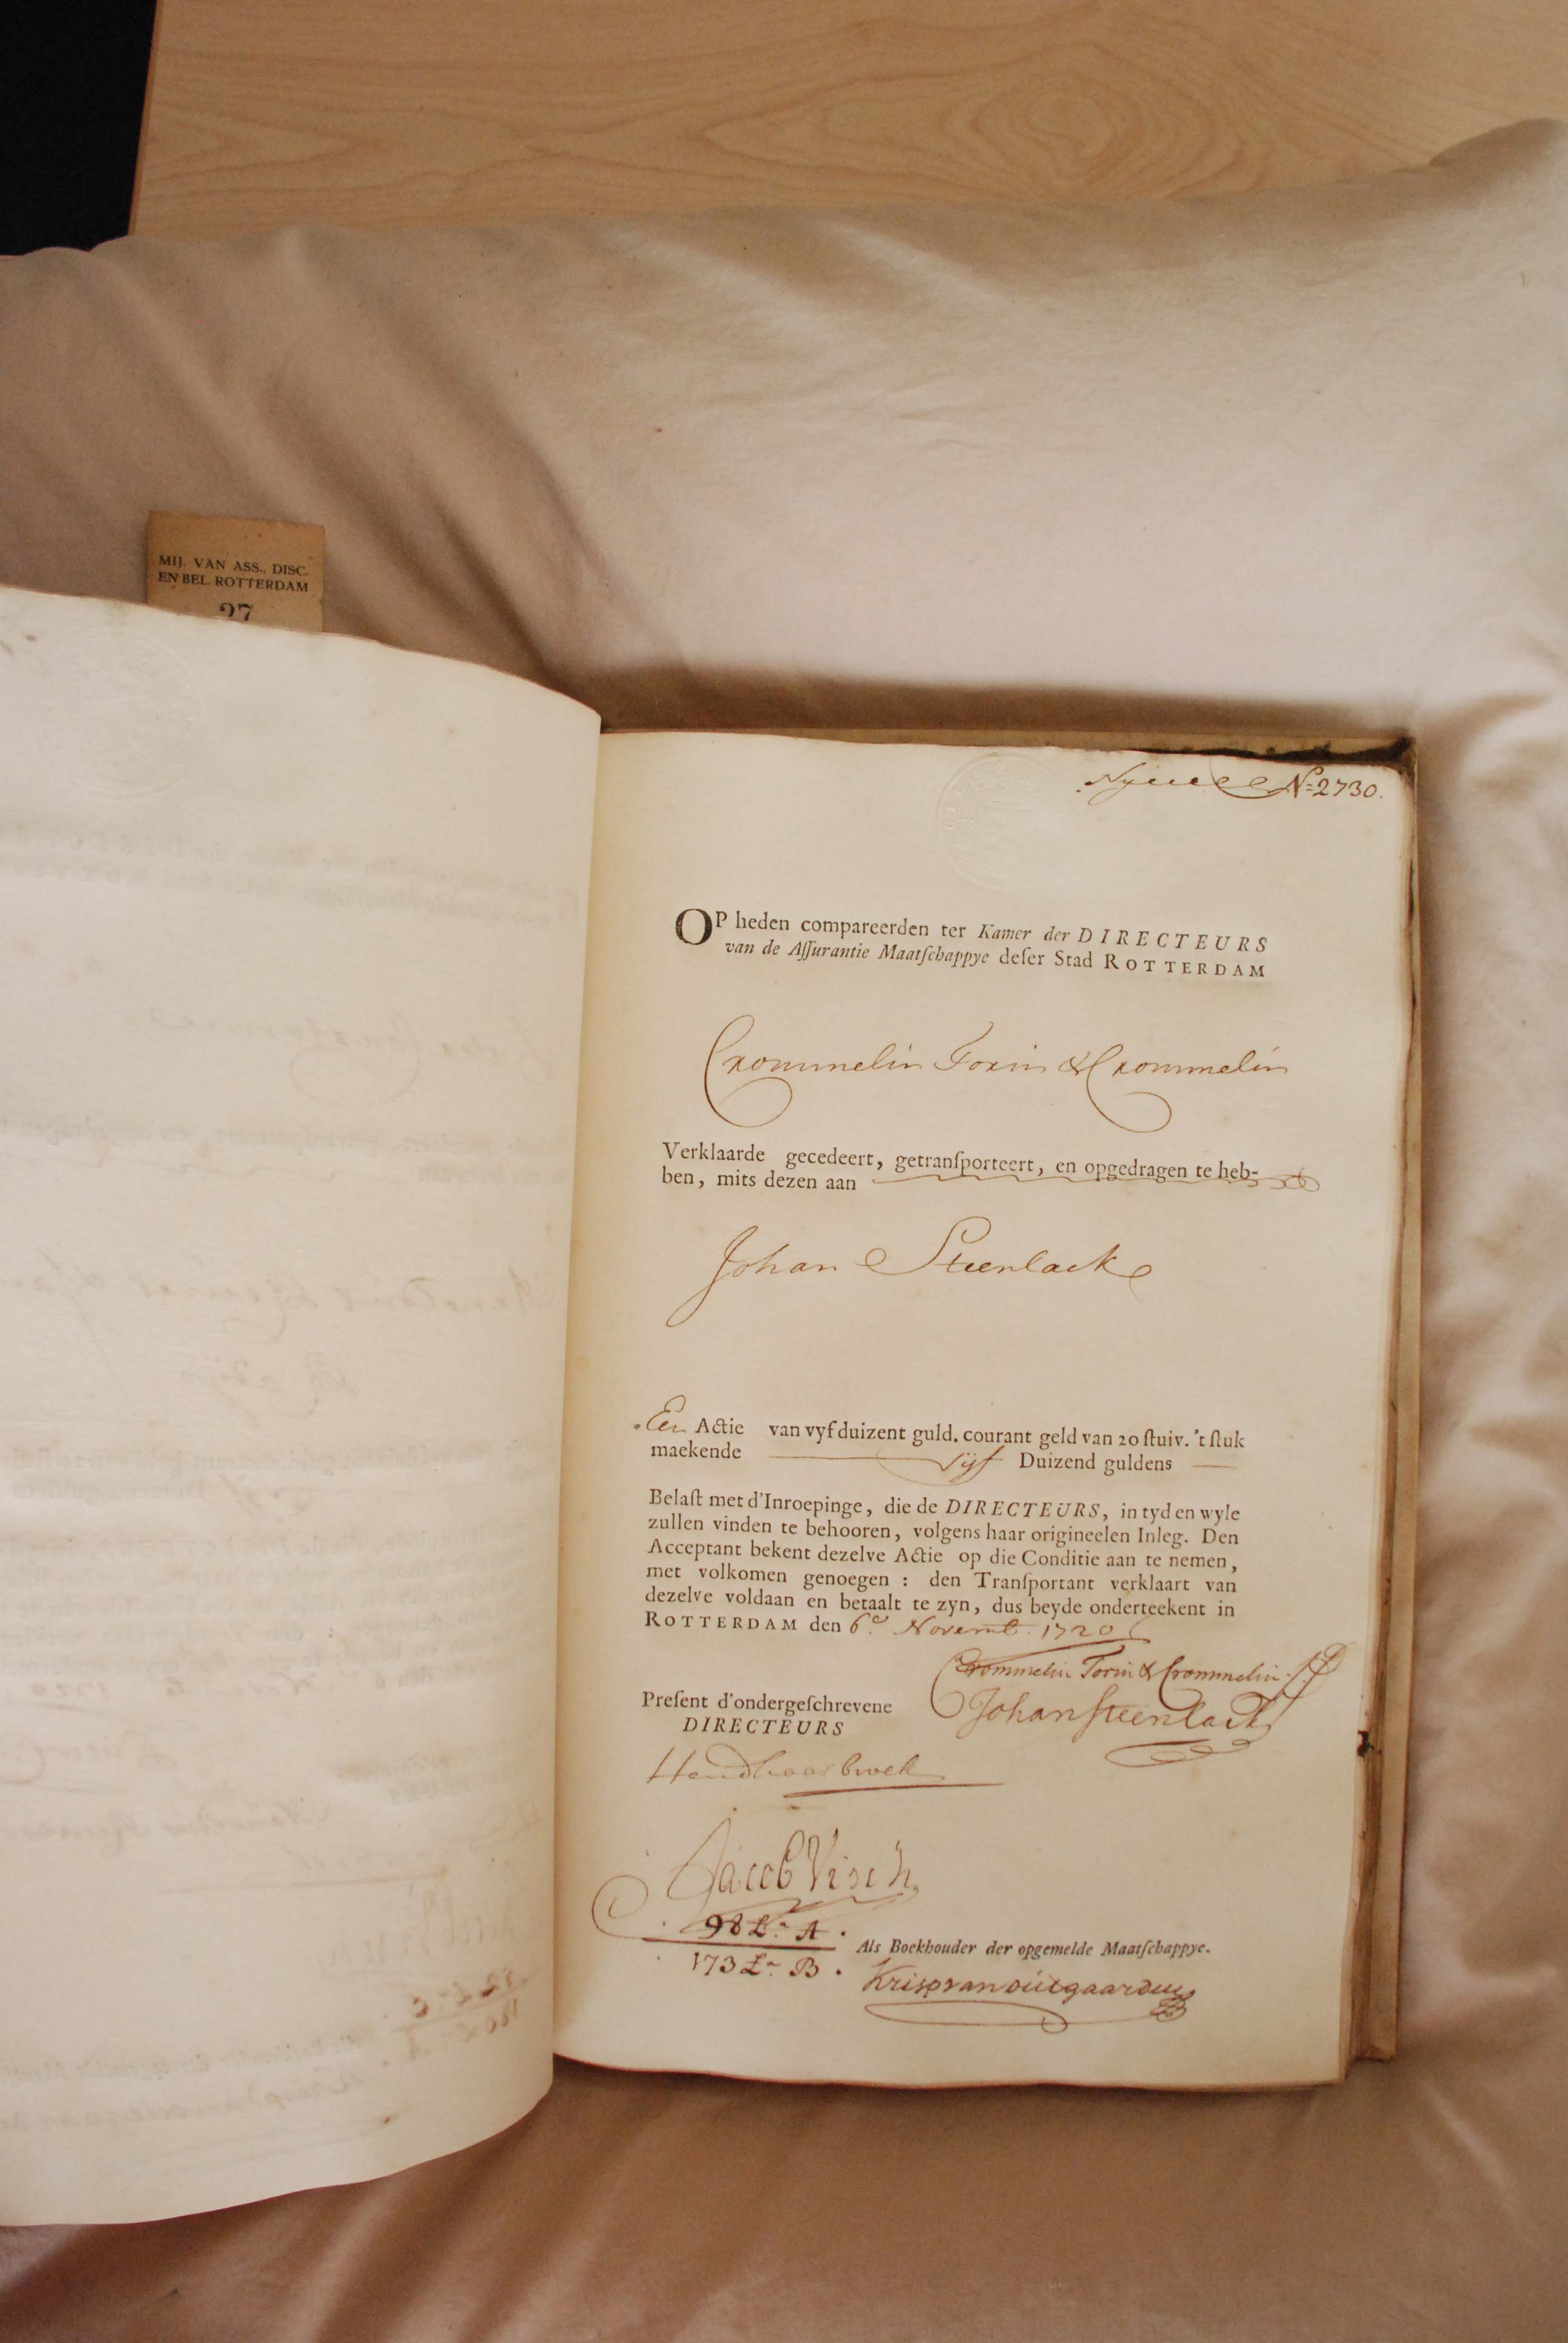 MIJ. VAN ASS., DISC.
EN BEL. ROTTERDAM
27
No 2730.
OP heden compareerden ter Kamer der DIRECTEURS
van de Aſſurantie Maatſchappye deſer Stad ROTTERDAM
Crommelin Torin & Crommelin
Verklaarde gecedeert, getranſporteert, en opgedragen te heb-
ben, mits dezen aan
Johan Steenlack
Een Actie van vyf duizent guld. courant geld van 20 ſtuiv. 't ſtuk
maekende Vijf Duizend guldens
Belaſt met d'Inroepinge, die de DIRECTEURS, in tyd en wyle
zullen vinden te behooren, volgens haar origineelen Inleg. Den
Acceptant bekent dezelve Actie op die Conditie aan te nemen,
met volkomen genoegen : den Tranſportant verklaart van
dezelve voldaan en betaalt te zyn, dus beyde onderteekent in
ROTTERDAM den 6e Novemb. 1720
Crommelin Torin & Crommelin
Preſent d'ondergeſchrevene
Johan Steenlack
DIRECTEURS
Jacob Visch
98 Lra A.
173 Lra B.
Als Boekhouder der opgemelde Maatſchappye.
Krisp van outgaarden